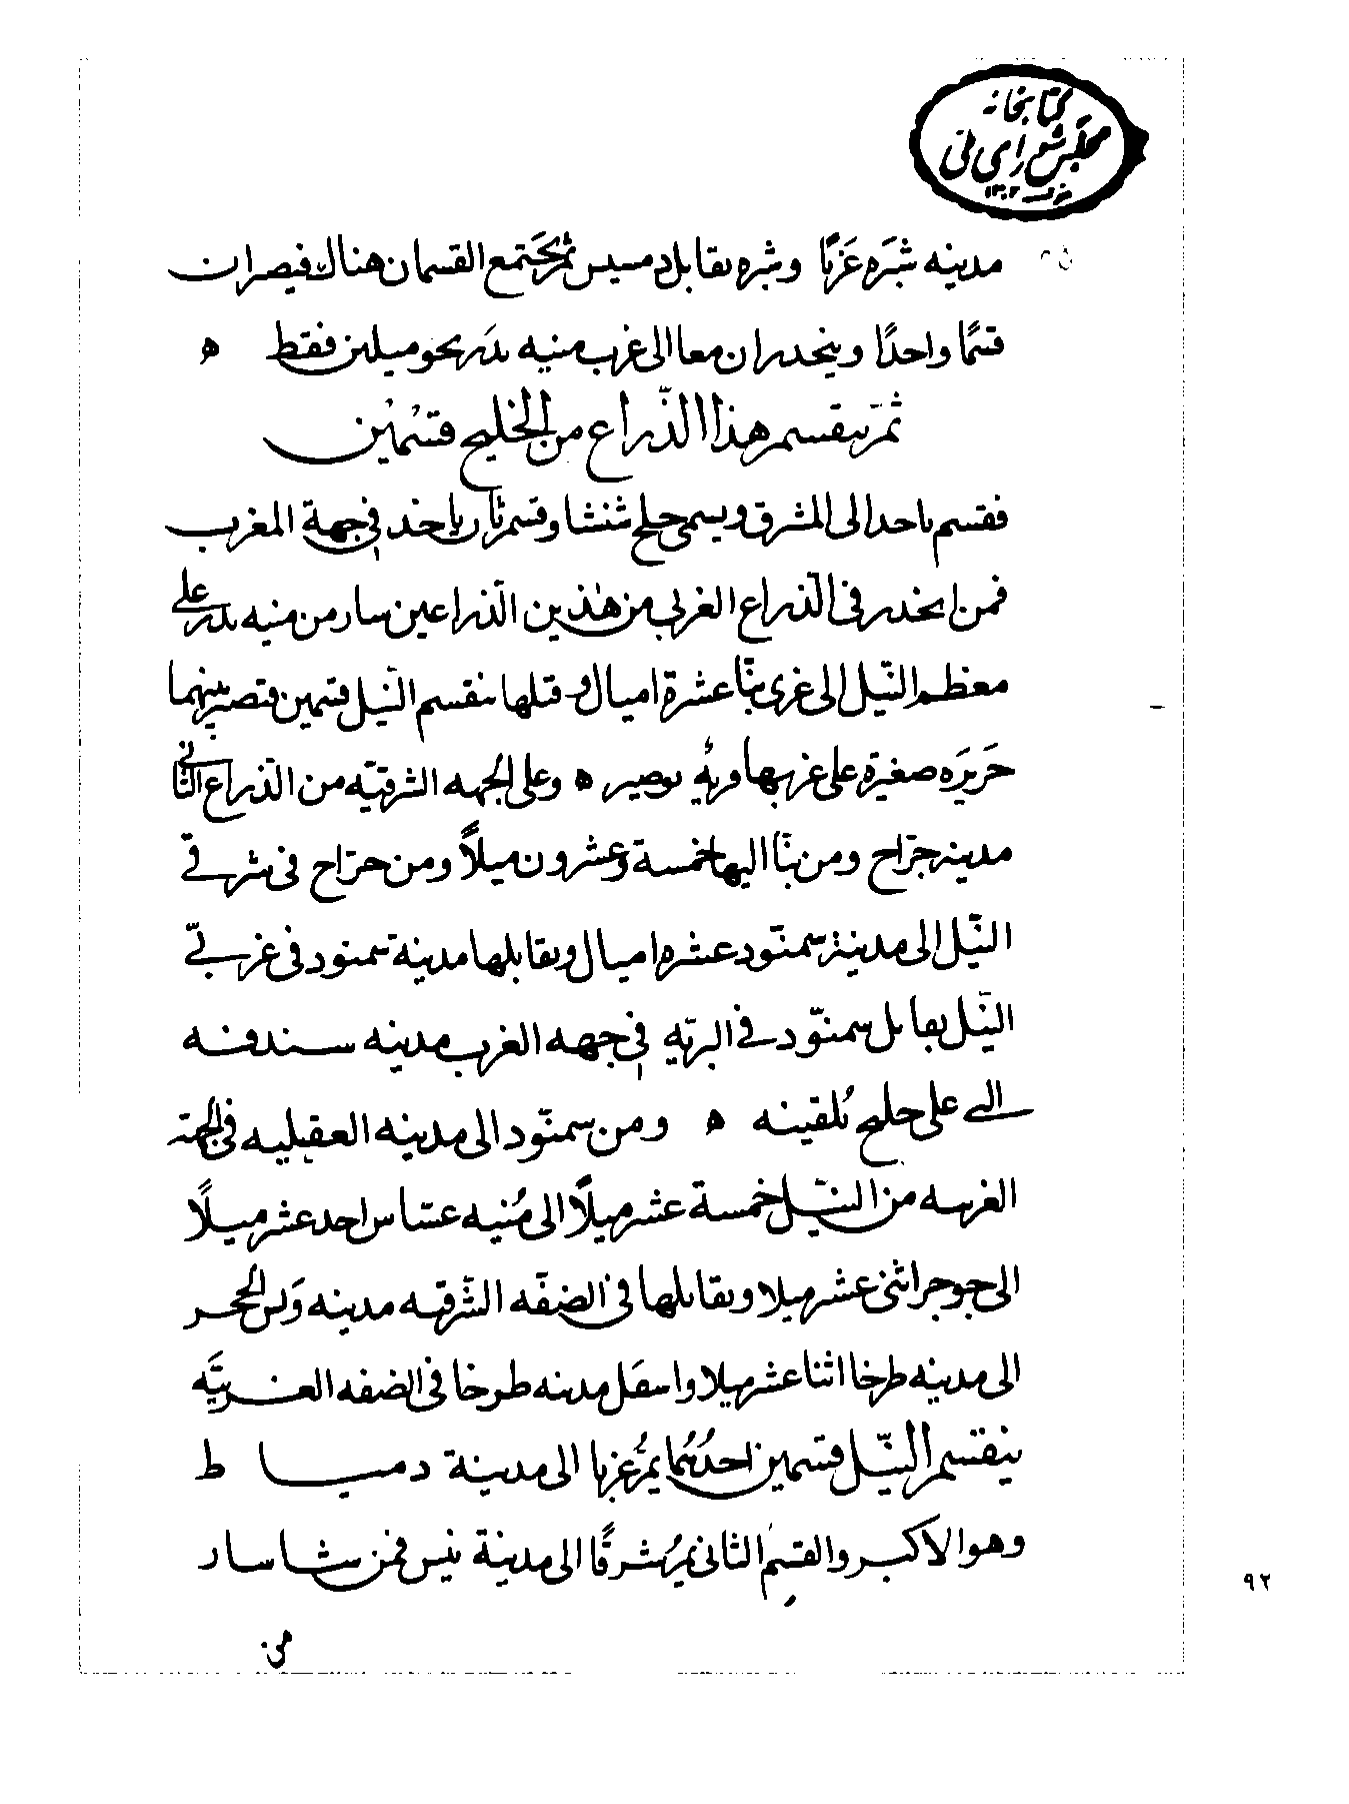 كتابخانه
مجلس شورای ملی
۱۳۰۲
مدينه شبره غربًا وشبره يقابل دمسيس ثم يجتمع القسمان هنالك فيصيران
قسمًا واحدًا وينحدران معا الى غرب منيه بدر نحو ميلين فقط ه
ثمّ ينقسم هذا الذّراع من الخليج قسمين
فقسم ياخذ الى المشرق ويسمى خليج شنشا وقسم ثان ياخذ في جهة المغرب
فمن انحدر في الذّراع الغربي من هذين الذّراعين سار من منيه بدر على
معظم النّيل الى غربي بنّا عشرة اميال وقبلها ينقسم النّيل قسمين فتصير بينهما
جَزيرَه صغيرة على غربيها قرية بوصير ه وعلى الجهه الشرقيّه من الذّراع الثّاني
مدينه جرّاح ومن بنّا اليها خمسة وعشرون ميلًا ومن جرّاح في شرقي
النّيل الى مدينة سمنّود عشره اميال ويقابلها مدينة سمنود في غربيّ
النّيل يقابل سمنّود في البريّه في جهه الغرب مدينه سندفه
التي على خليج بُلقينه ه ومن سمنّود الى مدينه العقيليه في الجهة
الغربيه من النيّل خمسة عشر ميلًا الى مُنيه عسّاس احد عشر ميلًا
الى جوجر اثنى عشر ميلا ويقابلها في الضفّه الشّرقيه مدينه وَيْس الحجر
الى مدينه طرخا اثنا عشر ميلا واسفل مدينه طرخا في الضفه الغربيّه
ينقسم النيّل قسمين احدُهُما يمُرّ غربا الى مدينة دمياط
وهو الاكبر والقسم الثانى يمرّ شرقًا الى مدينة تنيس فمن شا سار
من
٩٢